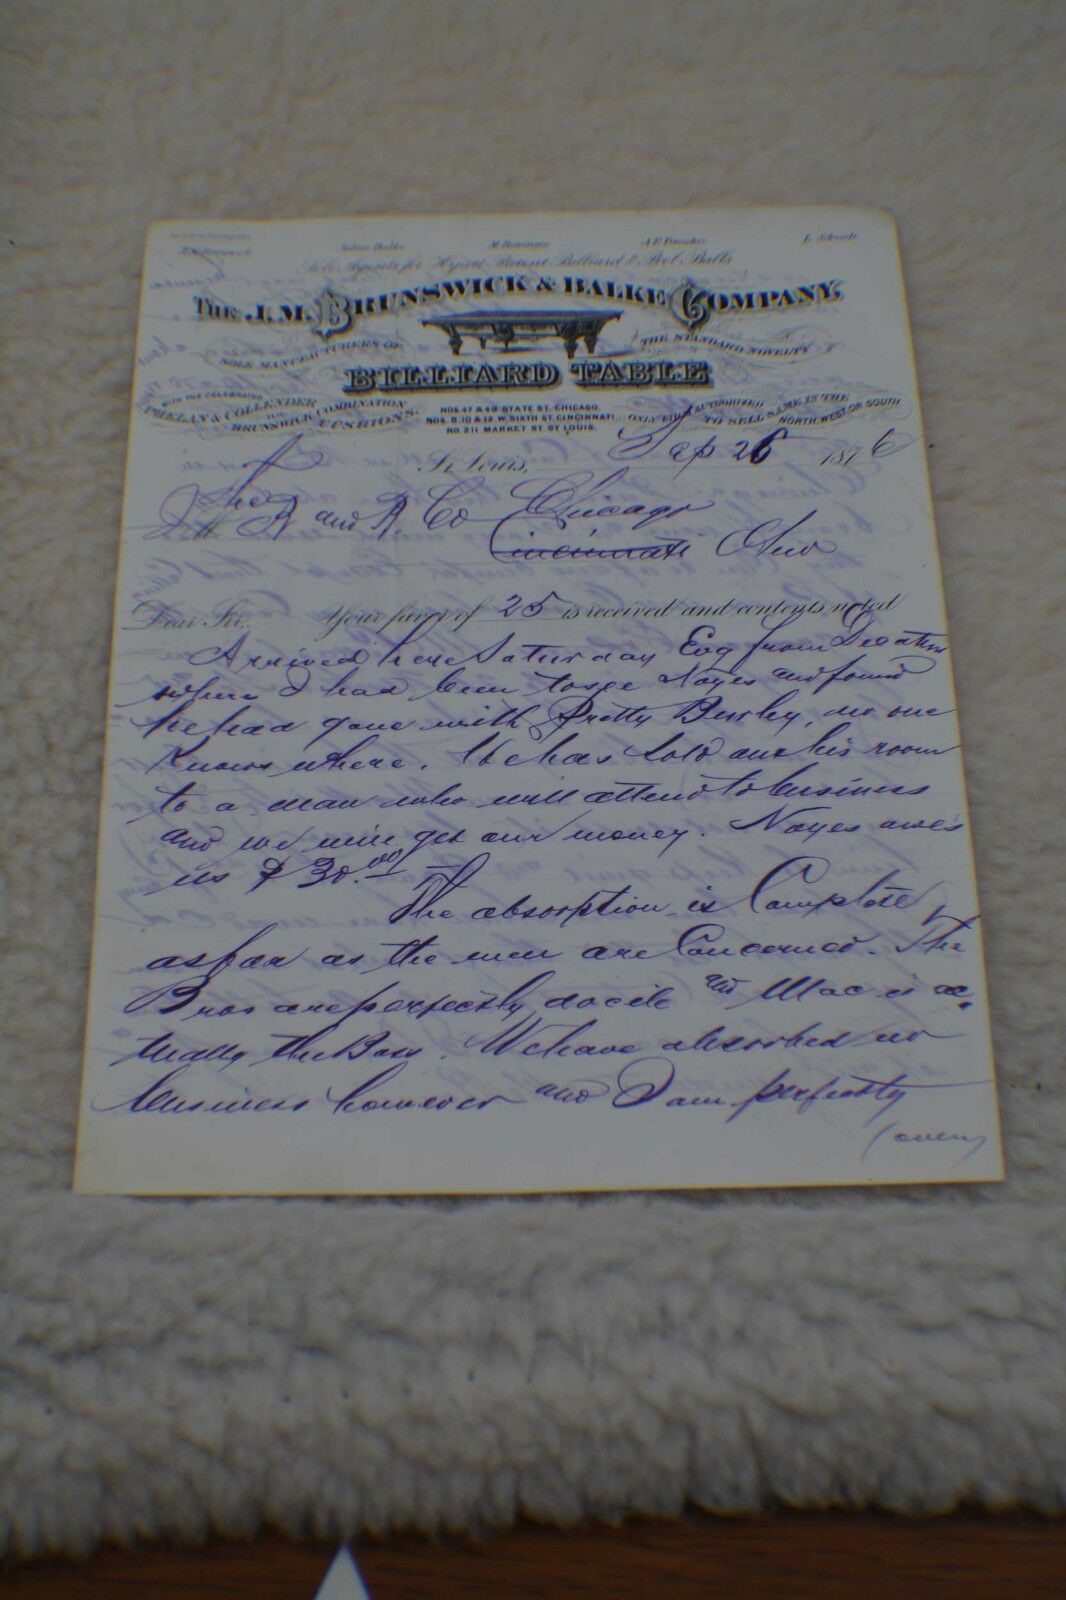 Julius Balke M. Bensinger A. F. Troescher L. Schmidt
Sole Agents for Hyatt Patent Billiard & Pool Balls
THE J. M. BRUNSWICK & BALKE COMPANY,
SOLE MANUFACTURERS OF THE STANDARD NOVELTY
BILLIARD TABLE
WITH THE CELEBRATED
PHELAN & COLLENDER
AND
BRUNSWICK COMBINATION
CUSHIONS.
NOS. 47 & 49 STATE ST. CHICAGO.
NOS. 8, 10 & 12 W. SIXTH ST. CINCINNATI.
NO. 211 MARKET ST. ST LOUIS.
ONLY FIRM AUTHORIZED
TO SELL SAME IN THE
NORTH, WEST OR SOUTH
St. Louis, Sep 26 1876
The B and B. Co Chicago
Cincinnati Ohio
Dear Sir. Your favor of 25 is received and contents noted
Arrived here Saturday Evg from Decatur
where I had been to see Noyes and found
he had gone with Pretty Burley, no one
Knows where. He has sold out his room
to a man who will attend to business
and we will get our money. Noyes owes
us $30.00
The absorption is Complete
as far as the men are Concerned. The
Bros are perfectly docile and Mac is ac
tually the Boss. We have absorbed no
business however and I am perfectly
(over)